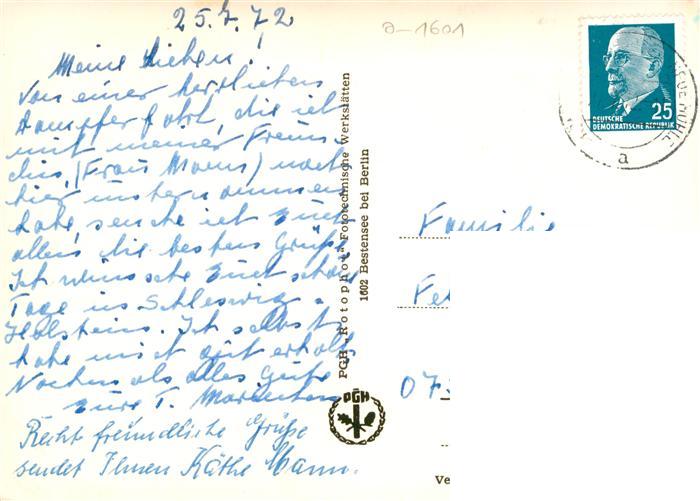 25.7.72
Meine Lieben!
Von einer herrlichen
Dampferfahrt, die ich
mit meiner Freun-
din, (Frau Mann) nach
hier unternommen
habe, sende ich Euch
allen die besten Grüße
Ich wünsche Euch schöne
Tage in Schleswig-
Holstein. Ich selbst
habe mich gut erholt
Nochmals alles Gute
Eure T.
Recht freundliche Grüße
sendet Ihnen Käthe Mann.
PGH „Rotophot“ Fototechnische Werkstätten
1602 Bestensee bei Berlin
PGH
a-1601
DEUTSCHE
DEMOKRATISCHE REPUBLIK
25
NEUE MÜHLE
a
Familie
Fe
07
Ve